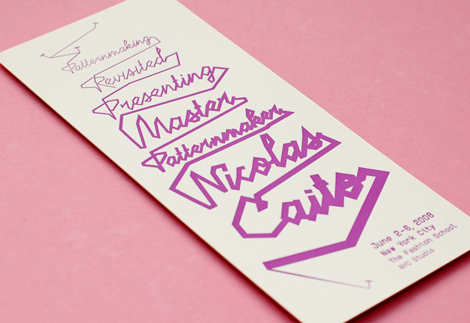 Patternmaking
Revisited
Presenting
Master
Patternmaker
Nicolas
Caito
June 2-6, 2008
New York City
The Fashion School
NYC Studio